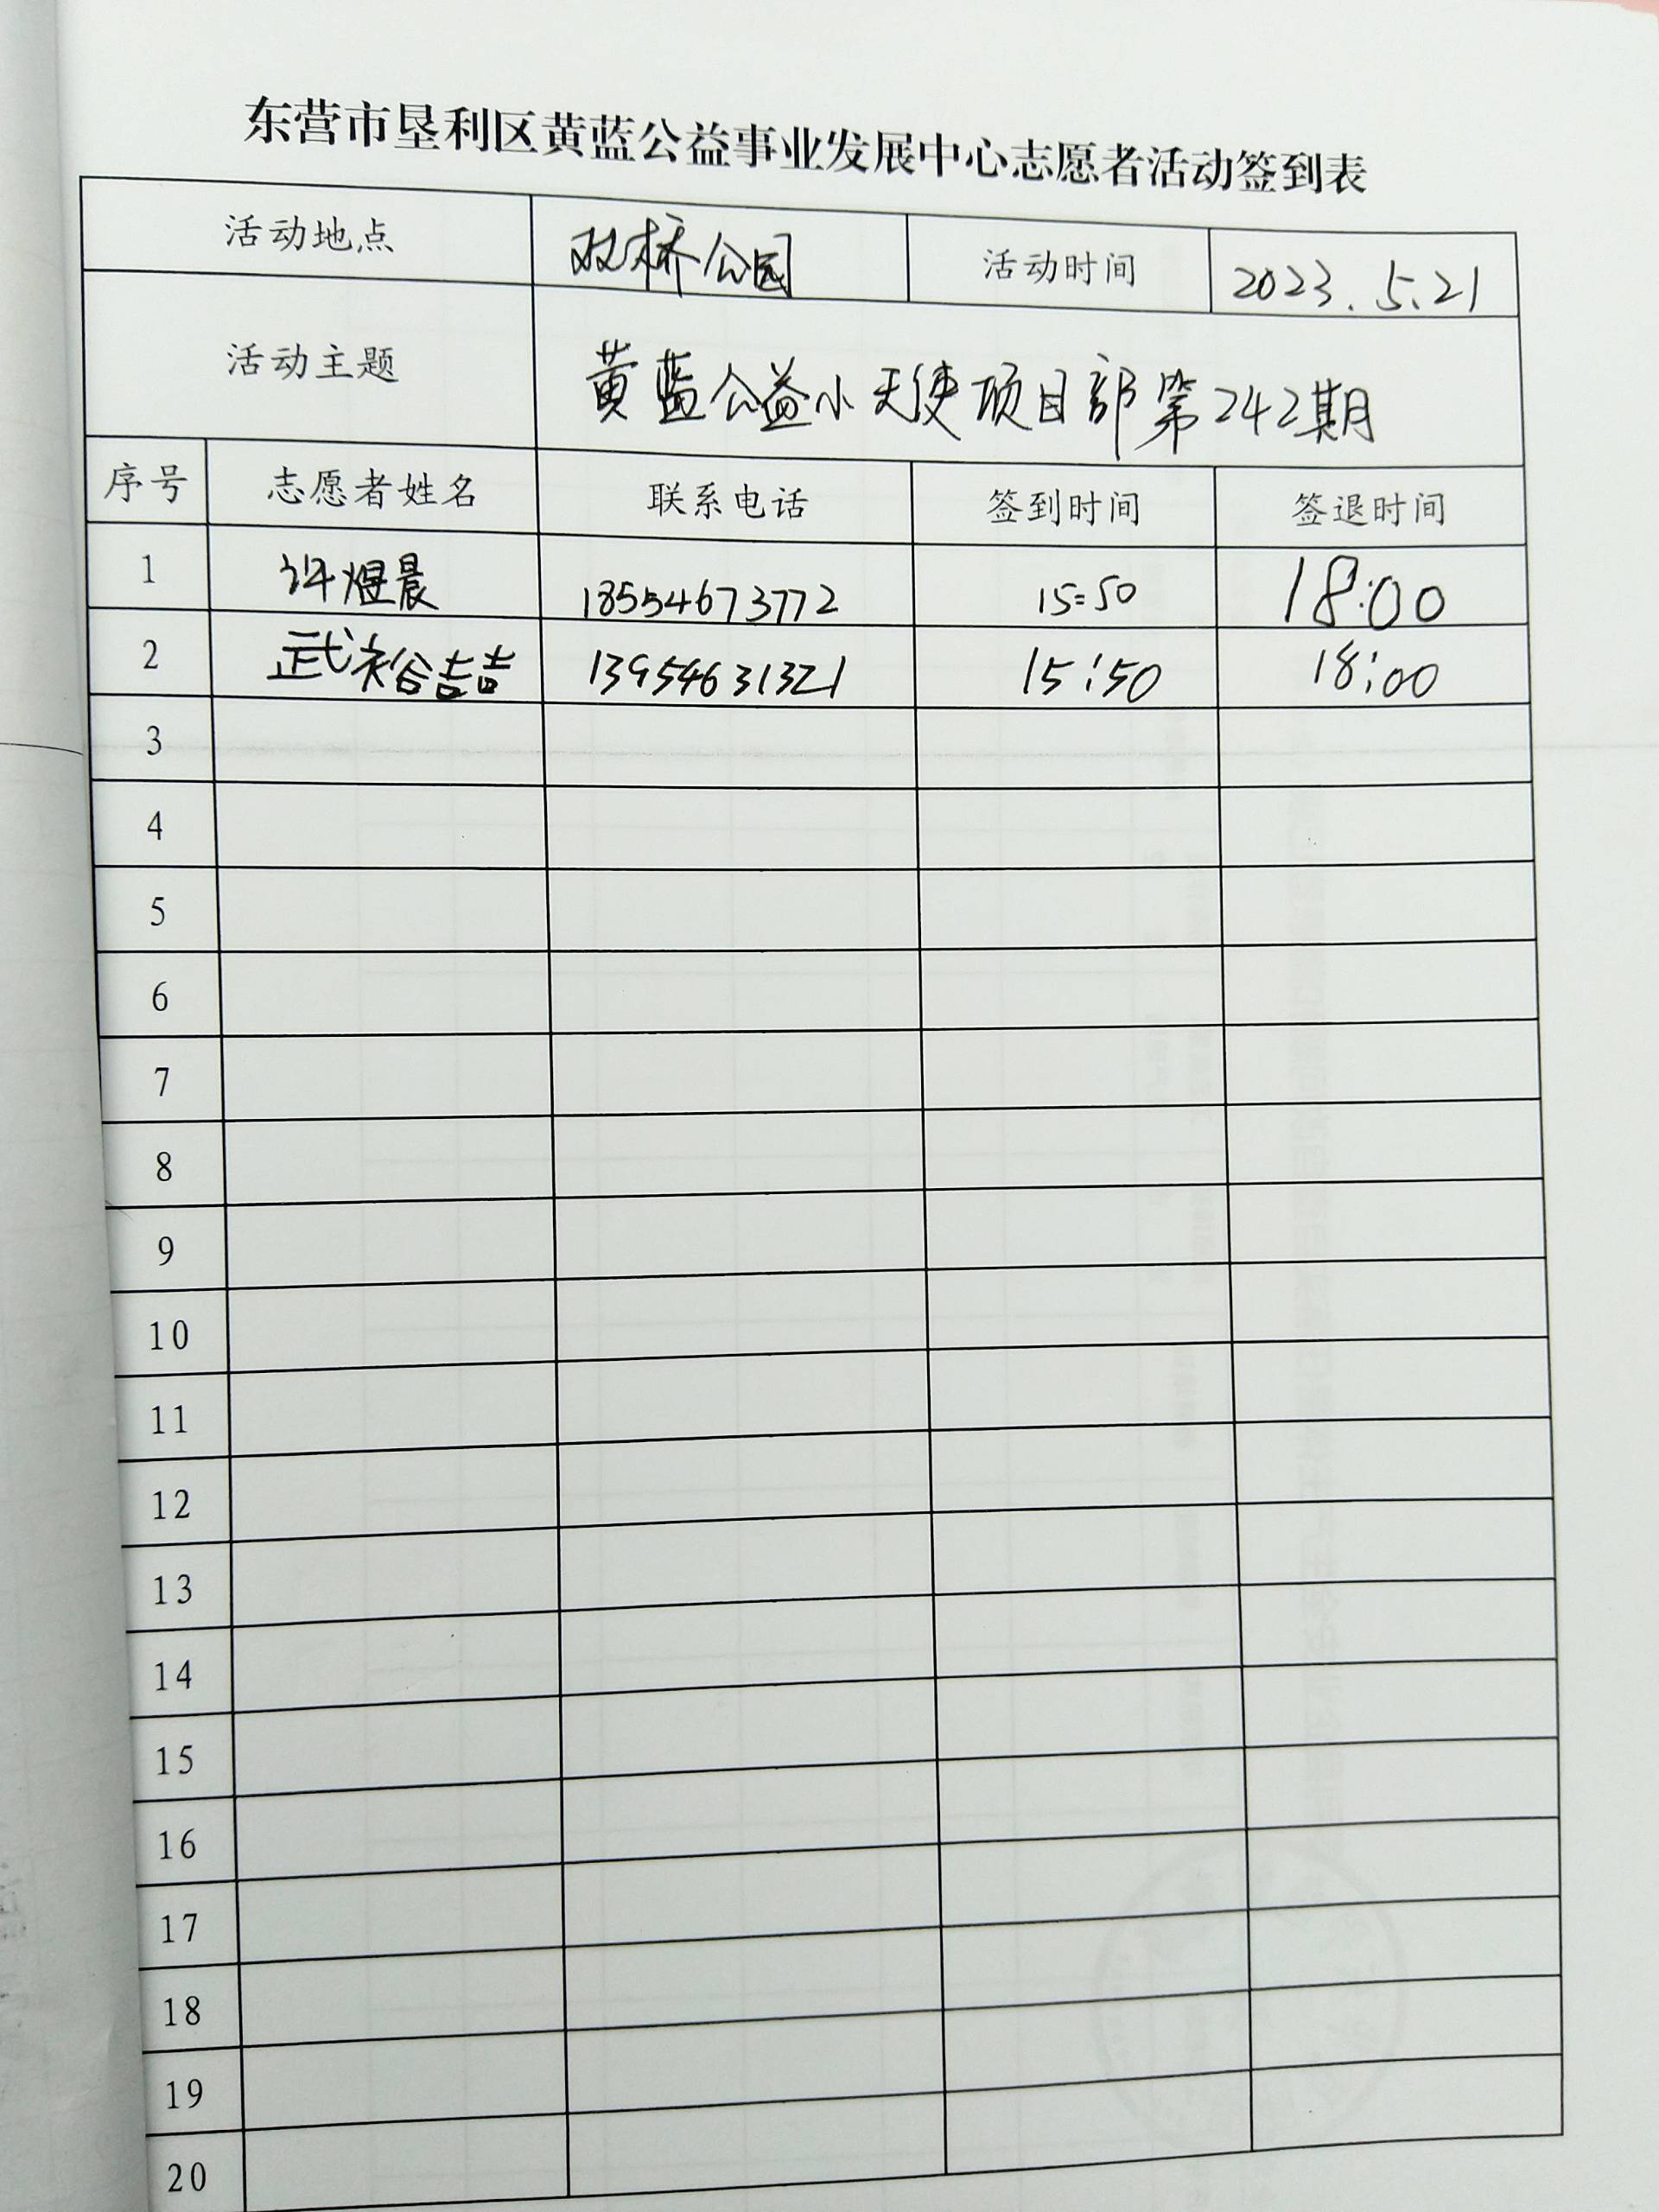 东营市垦利区黄蓝公益事业发展中心志愿者活动签到表
活动地点 双桥公园 活动时间 2023.5.21
活动主题 黄蓝公益小天使项目部第242期
序号 志愿者姓名 联系电话 签到时间 签退时间
1 许煜晨 18554673772 15:50 18:00
2 武裕喆 13954631321 15:50 18:00
3
4
5
6
7
8
9
10
11
12
13
14
15
16
17
18
19
20